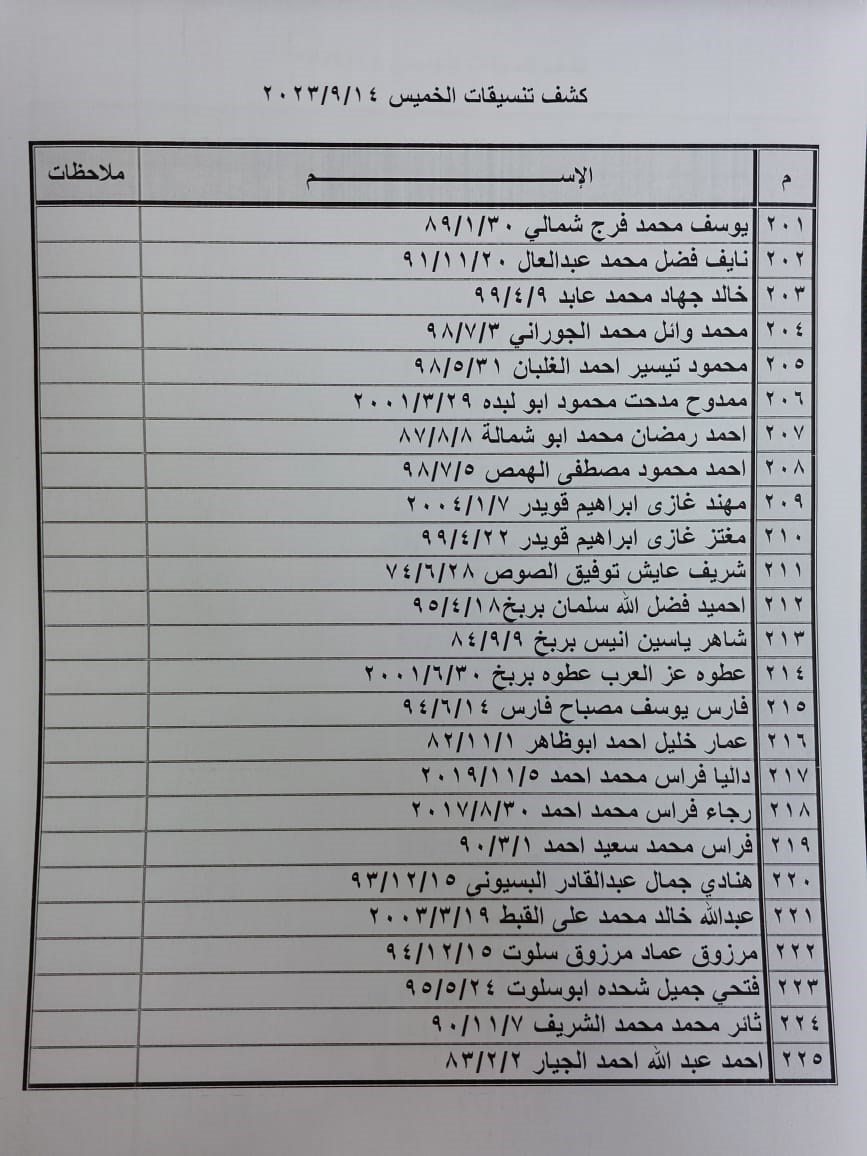 كشف تنسيقات الخميس ٢٠٢٣/٩/١٤
م الإســـــــــــــــــم ملاحظات
٢٠١ يوسف محمد فرج شمالي ٨٩/١/٣٠
٢٠٢ نايف فضل محمد عبدالعال ٩١/١١/٢٠
٢٠٣ خالد جهاد محمد عابد ٩٩/٤/٩
٢٠٤ محمد وائل محمد الجوراني ٩٨/٧/٣
٢٠٥ محمود تيسير احمد الغلبان ٩٨/٥/٣١
٢٠٦ ممدوح مدحت محمود ابو لبده ٢٠٠١/٣/٢٩
٢٠٧ احمد رمضان محمد ابو شمالة ٨٧/٨/٨
٢٠٨ احمد محمود مصطفى الهمص ٩٨/٧/٥
٢٠٩ مهند غازى ابراهيم قويدر ٢٠٠٤/١/٧
٢١٠ مغتز غازى ابراهيم قويدر ٩٩/٤/٢٢
٢١١ شريف عايش توفيق الصوص ٧٤/٦/٢٨
٢١٢ احميد فضل الله سلمان بربخ٩٥/٤/١٨
٢١٣ شاهر ياسين انيس بربخ ٨٤/٩/٩
٢١٤ عطوه عز العرب عطوه بربخ ٢٠٠١/٦/٣٠
٢١٥ فارس يوسف مصباح فارس ٩٤/٦/١٤
٢١٦ عمار خليل احمد ابوظاهر ٨٢/١١/١
٢١٧ داليا فراس محمد احمد ٢٠١٩/١١/٥
٢١٨ رجاء فراس محمد احمد ٢٠١٧/٨/٣٠
٢١٩ فراس محمد سعيد احمد ٩٠/٣/١
٢٢٠ هنادي جمال عبدالقادر البسيونى ٩٣/١٢/١٥
٢٢١ عبدالله خالد محمد على القبط ٢٠٠٣/٣/١٩
٢٢٢ مرزوق عماد مرزوق سلوت ٩٤/١٢/١٥
٢٢٣ فتحي جميل شحده ابوسلوت ٩٥/٥/٢٤
٢٢٤ ثائر محمد محمد الشريف ٩٠/١١/٧
٢٢٥ احمد عبد الله احمد الجيار ٨٣/٢/٢